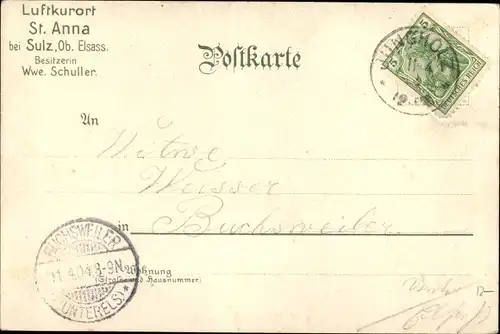 Luftkurort
St. Anna
bei Sulz, Ob. Elsass.
Besitzerin
Wwe. Schuller.
Postkarte
JUNGHOLZ
11
5
DEUTSCHES REICH
An
Witwe
Weisser
in Buchsweiler
BUCHSWEILER
11.4.04.8-9N
*(UNTERELS)*
Wohnung
(Straße und Hausnummer)
12-